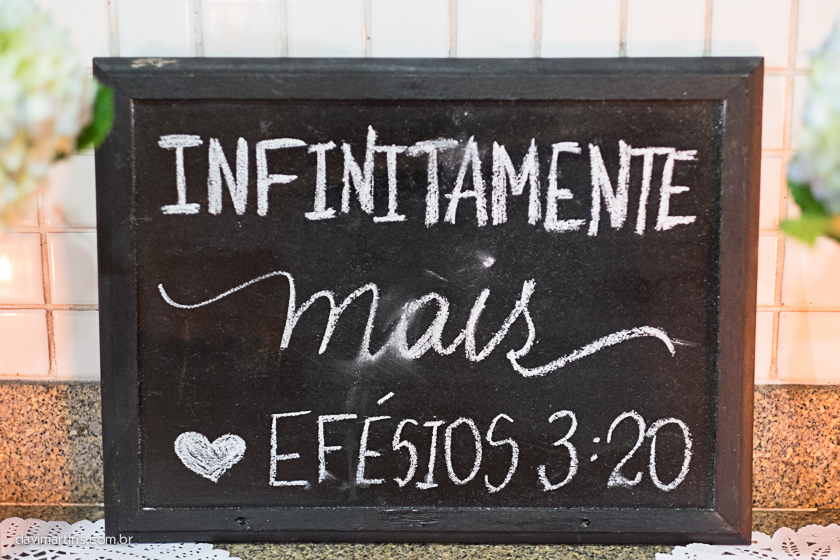 INFINITAMENTE
mais
EFÉSIOS 3:20
davimartins.com.br